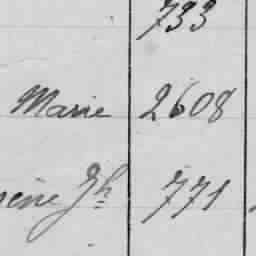 733
Marie 2608
Jh 771